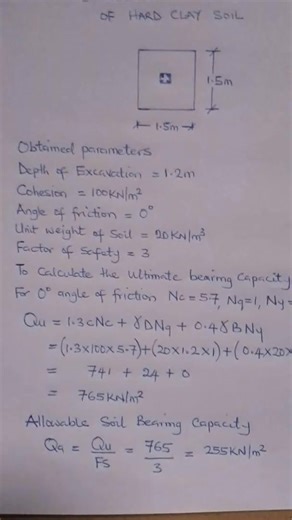 OF HARD CLAY SOIL
1.5m
1.5m
Obtained parameters
Depth of Excavation = 1.2m
Cohesion = 100KN/m²
Angle of friction = 0°
Unit weight of Soil = 20KN/m³
Factor of Safety = 3
To Calculate the Ultimate bearing Capacity
For 0° angle of friction Nc=5.7, Nq=1, Nγ=
Qu = 1.3cNc + γDNq + 0.4γBNγ
= (1.3×100×5.7)+(20×1.2×1)+(0.4×20×
= 741 + 24 + 0
= 765KN/m²
Allowable Soil Bearing Capacity
Qa = Qu/FS = 765/3 = 255KN/m²